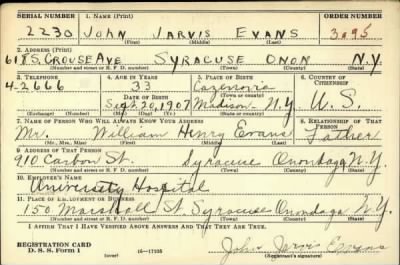 SERIAL NUMBER 1. NAME (Print) ORDER NUMBER
2230 JOHN JARVIS EVANS 3095
(First) (Middle) (Last)
2. ADDRESS (Print)
618 S. CROUSE AVE SYRACUSE ONON N.Y.
(Number and street or R. F. D. number) (Town) (County) (State)
3. TELEPHONE 4. AGE IN YEARS 5. PLACE OF BIRTH 6. COUNTRY OF CITIZENSHIP
4-2666 33 Cazenovia
DATE OF BIRTH (Town or county)
Sept. 20, 1907 Madison - N.Y U.S.
(Exchange) (Number) (Mo.) (Day) (Yr.) (State or country)
7. NAME OF PERSON WHO WILL ALWAYS KNOW YOUR ADDRESS 8. RELATIONSHIP OF THAT PERSON
Mr. William Henry Evans Father
(Mr., Mrs., Miss) (First) (Middle) (Last)
9. ADDRESS OF THAT PERSON
910 Carbon St. Syracuse Onondaga N.Y.
(Number and street or R. F. D. number) (Town) (County) (State)
10. EMPLOYER'S NAME
University Hospital
11. PLACE OF EMPLOYMENT OR BUSINESS
150 Marshall St. Syracuse Onondaga N.Y.
(Number and street or R. F. D. number) (Town) (County) (State)
I AFFIRM THAT I HAVE VERIFIED ABOVE ANSWERS AND THAT THEY ARE TRUE.
REGISTRATION CARD
D. S. S. Form 1 (over) 16-17105 John Jarvis Evans
(Registrant's signature)